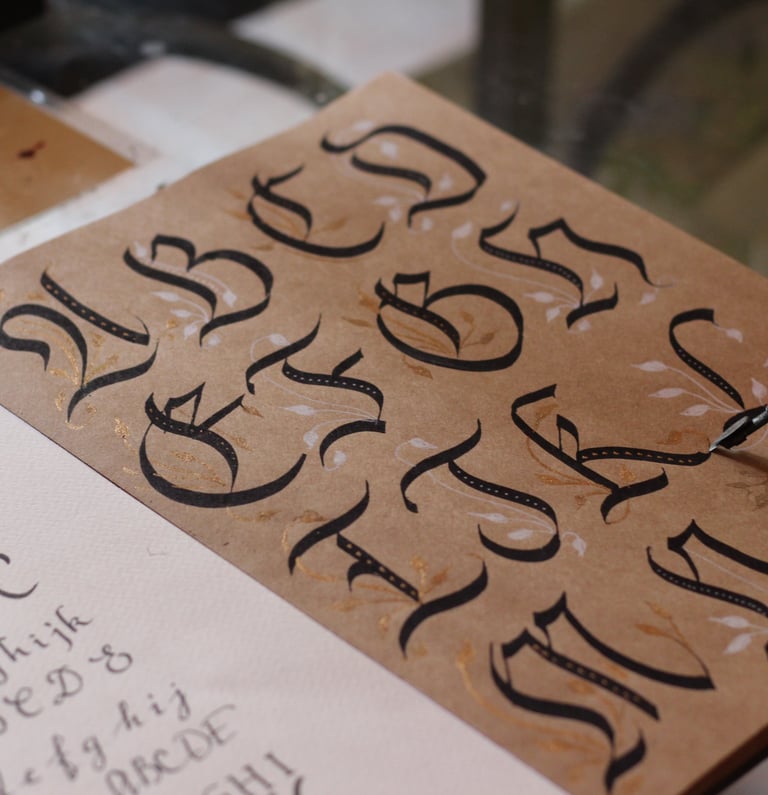 A B C D
E F G H
I J K L
M N
C
ghijk
C D E
e f g h i j
ABCDE
GHI